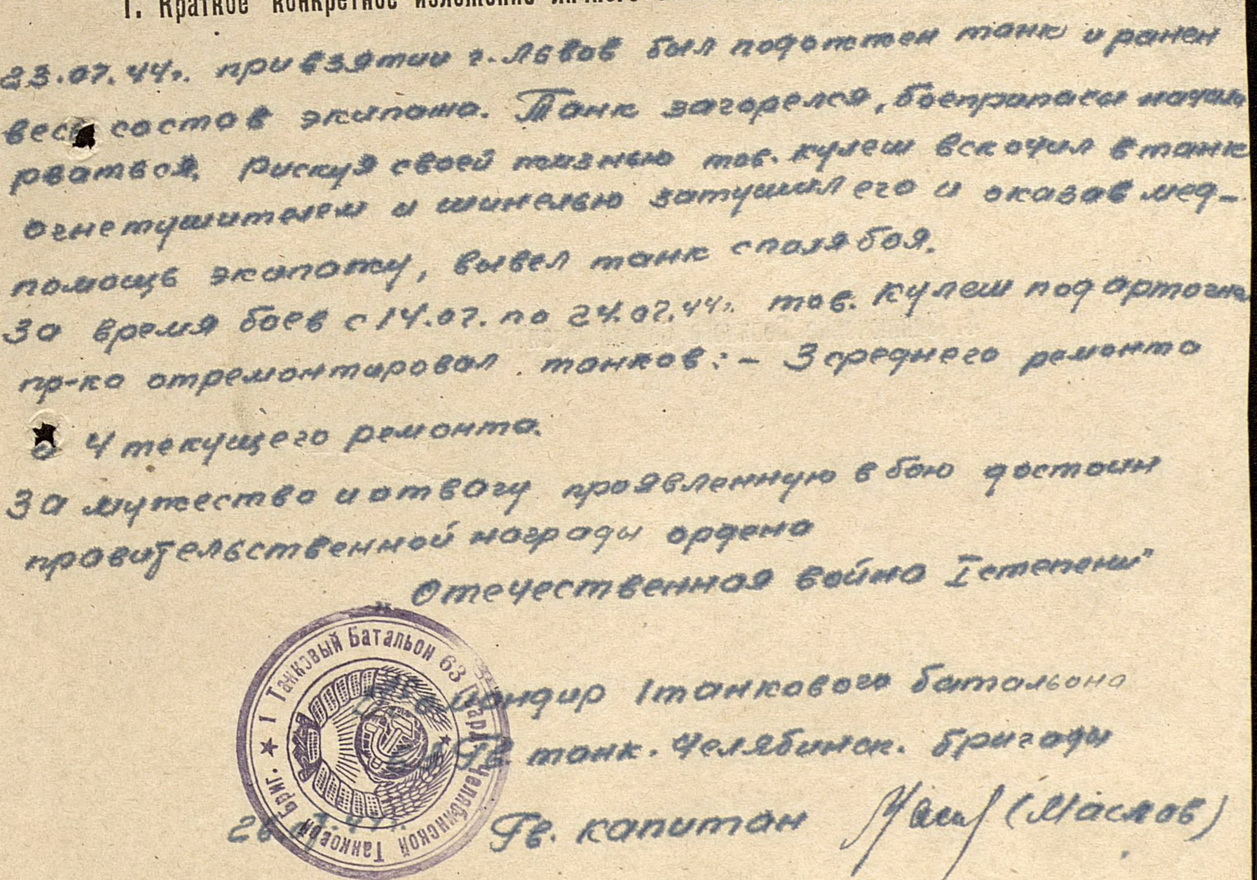 1. Краткое конкретное изложение личного
23.07.44г. при взятии г. Львов был подожжен танк и ранен
весь состав экипажа. Танк загорелся, боеприпасы начали
рваться. Рискуя своей жизнью тов. Кулеш вскочил в танк
огнетушителем и шинелью затушил его и оказав мед-
помощь экипажу, вывел танк с поля боя.
За время боев с 14.07. по 24.07.44г. тов. Кулеш под артогнем
пр-ка отремонтировал танков: - 3 среднего ремонта
и 4 текущего ремонта.
За мужество и отвагу проявленную в бою достоин
правительственной награды ордена
„Отечественная война I степени"
Командир 1 танкового батальона
Гв. танк. Челябинск. бригады
Гв. капитан (Маслов)
I Танковый Батальон 63 Гвард. Челябинской Танковой Бриг.